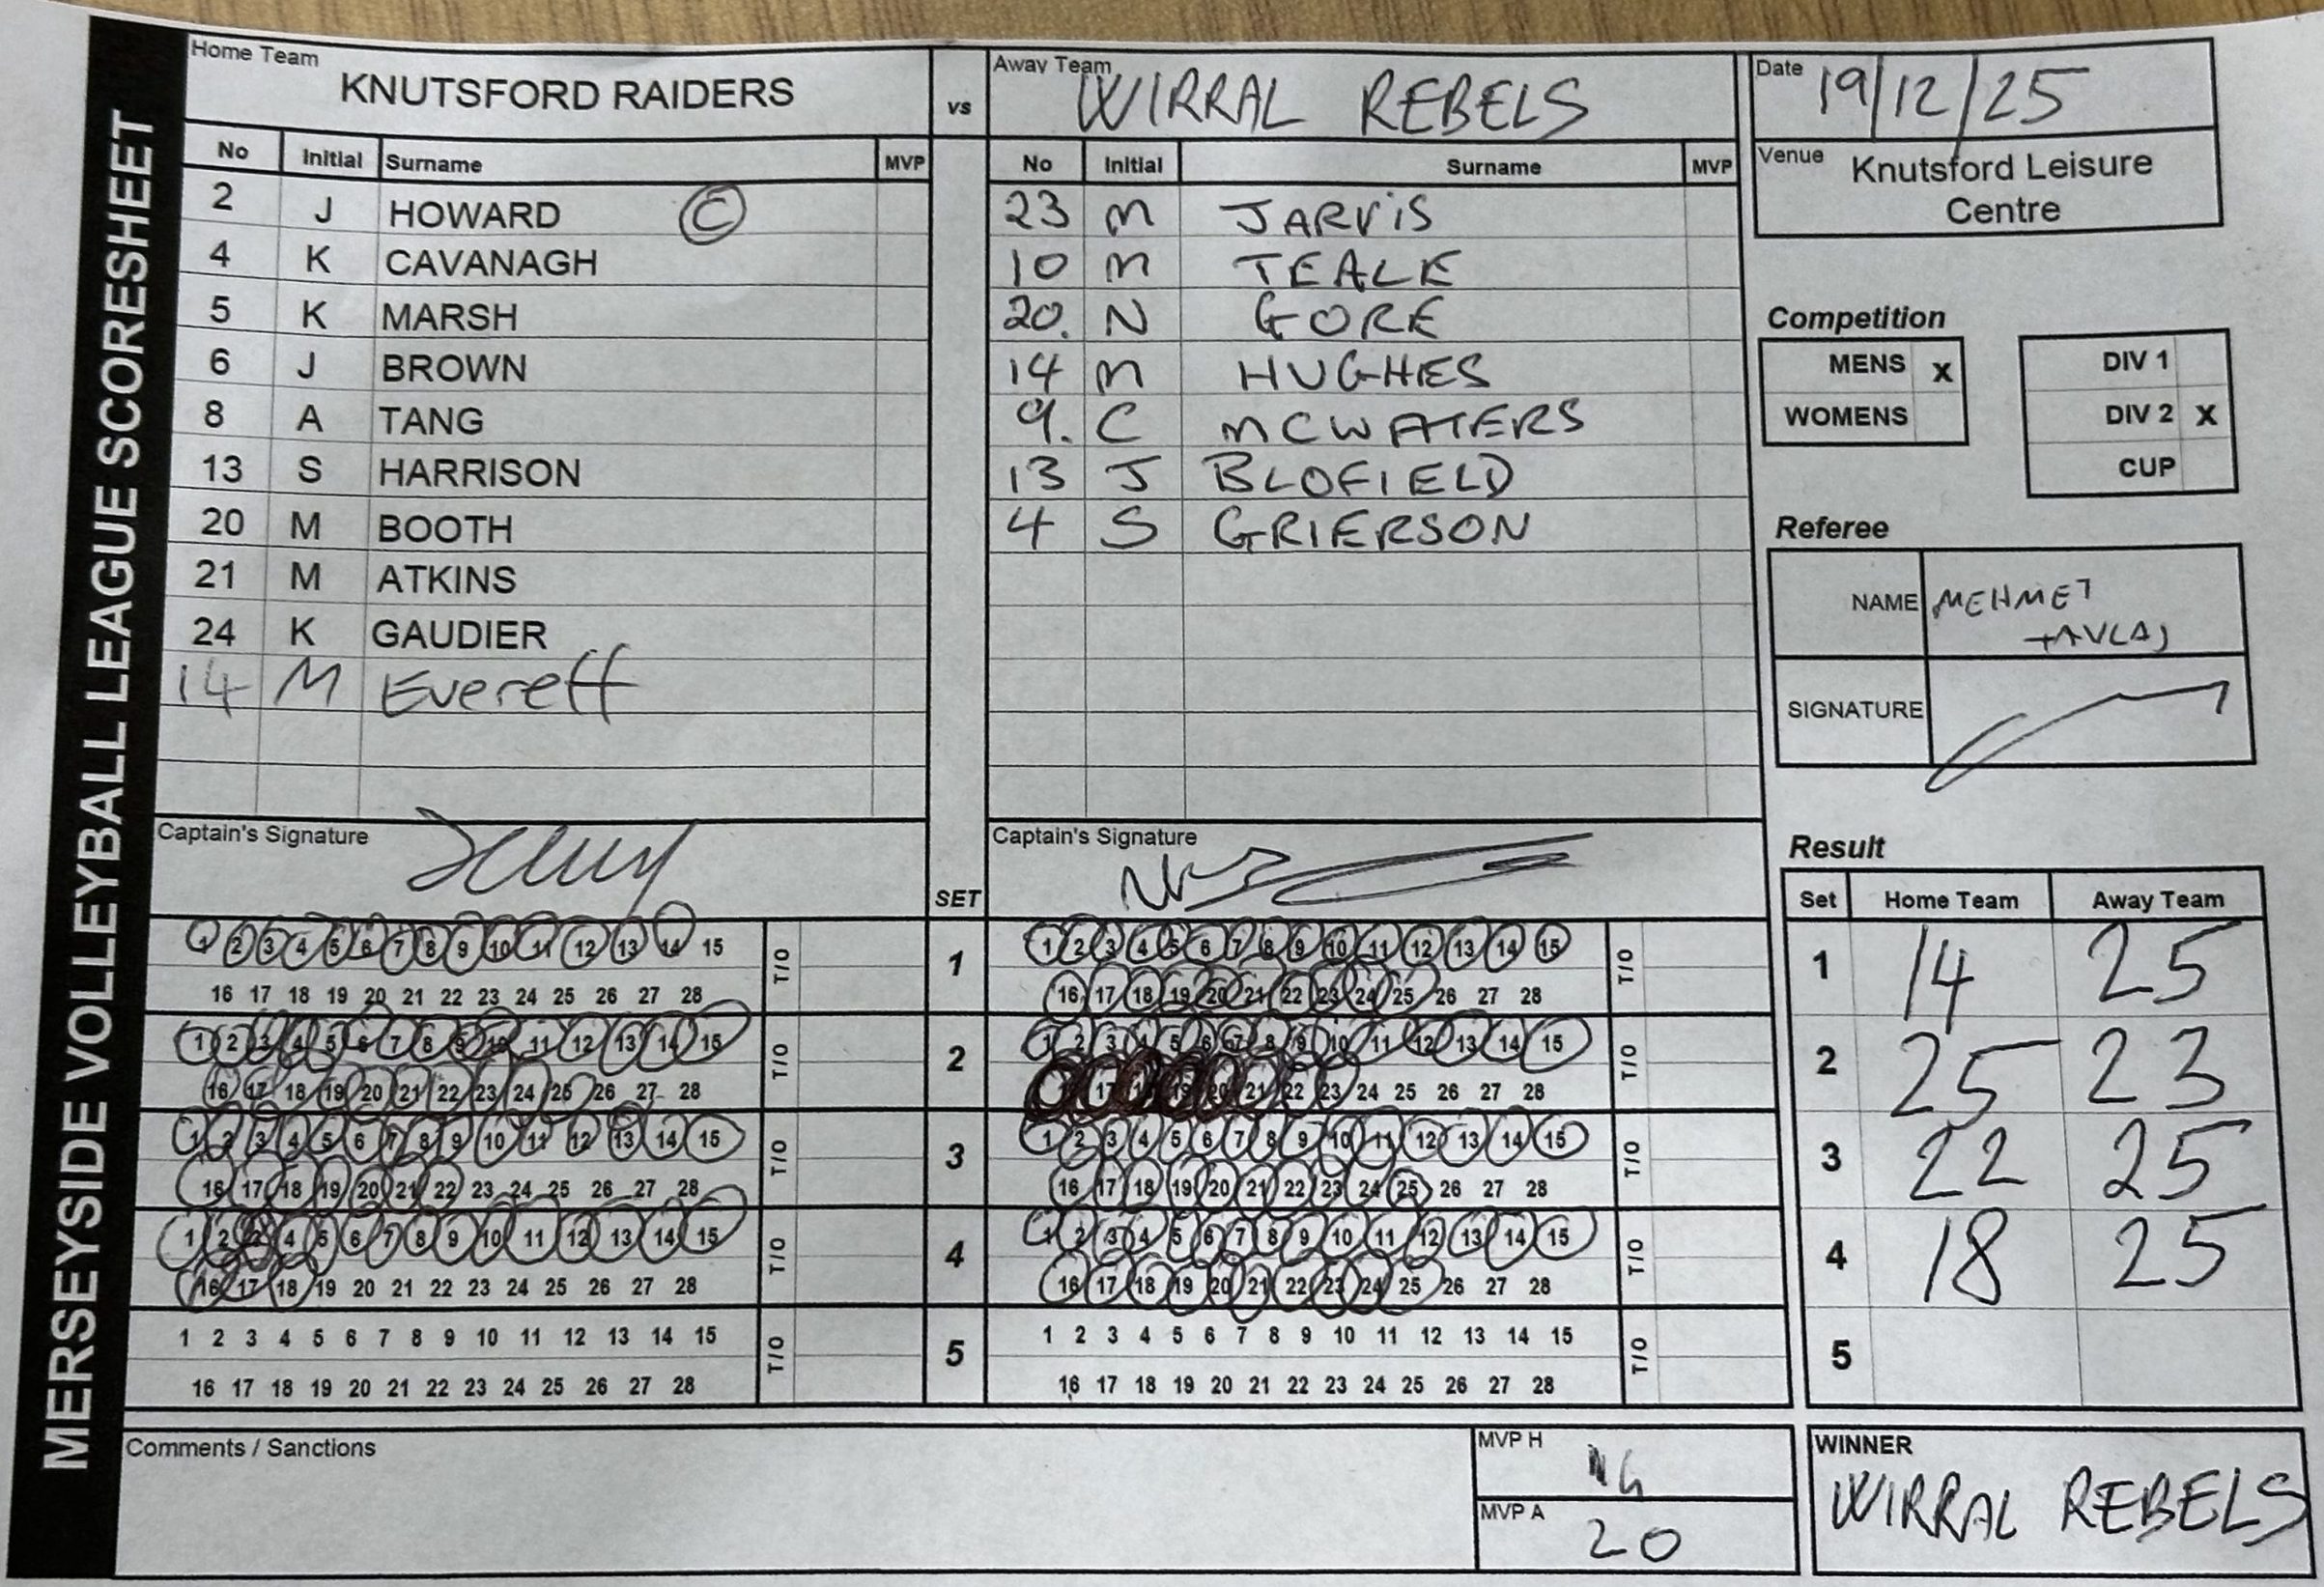 MERSEYSIDE VOLLEYBALL LEAGUE SCORESHEET
Home Team
KNUTSFORD RAIDERS
vs
Away Team
WIRRAL REBELS
Date 19/12/25
Venue Knutsford Leisure
Centre
No Initial Surname MVP
2 J HOWARD C
4 K CAVANAGH
5 K MARSH
6 J BROWN
8 A TANG
13 S HARRISON
20 M BOOTH
21 M ATKINS
24 K GAUDIER
14 M Everett
No Initial Surname MVP
23 M JARVIS
10 M TEALE
20. N GORE
14 M HUGHES
9. C MCWATERS
13 J BLOFIELD
4 S GRIERSON
Competition
MENS X
WOMENS
DIV 1
DIV 2 X
CUP
Referee
NAME MEHMET
SIGNATURE
Captain's Signature
SET
Captain's Signature
1 2 3 4 5 6 7 8 9 10 11 12 13 14 15 T/O
16 17 18 19 20 21 22 23 24 25 26 27 28
1
1 2 3 4 5 6 7 8 9 10 11 12 13 14 15 T/O
16 17 18 19 20 21 22 23 24 25 26 27 28
1 2 3 4 5 6 7 8 9 10 11 12 13 14 15 T/O
16 17 18 19 20 21 22 23 24 25 26 27 28
2
1 2 3 4 5 6 7 8 9 10 11 12 13 14 15 T/O
17 19 20 21 22 23 24 25 26 27 28
1 2 3 4 5 6 7 8 9 10 11 12 13 14 15 T/O
16 17 18 19 20 21 22 23 24 25 26 27 28
3
1 2 3 4 5 6 7 8 9 10 11 12 13 14 15 T/O
16 17 18 19 20 21 22 23 24 25 26 27 28
1 2 3 4 5 6 7 8 9 10 11 12 13 14 15 T/O
16 17 18 19 20 21 22 23 24 25 26 27 28
4
1 2 3 4 5 6 7 8 9 10 11 12 13 14 15 T/O
16 17 18 19 20 21 22 23 24 25 26 27 28
1 2 3 4 5 6 7 8 9 10 11 12 13 14 15 T/O
16 17 18 19 20 21 22 23 24 25 26 27 28
5
1 2 3 4 5 6 7 8 9 10 11 12 13 14 15 T/O
16 17 18 19 20 21 22 23 24 25 26 27 28
Result
Set Home Team Away Team
1 14 25
2 25 23
3 22 25
4 18 25
5
Comments / Sanctions
MVP H
MVP A 20
WINNER
WIRRAL REBELS